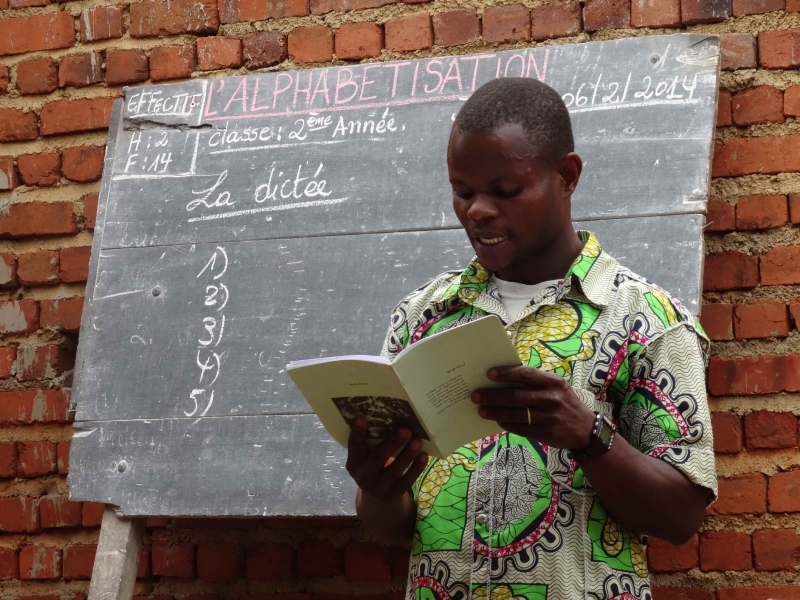 EFFECTIF
L'ALPHABETISATION
06/2/2014
H : 2
F : 14
classe : 2ème Année.
La dictée
1)
2)
3)
4)
5)